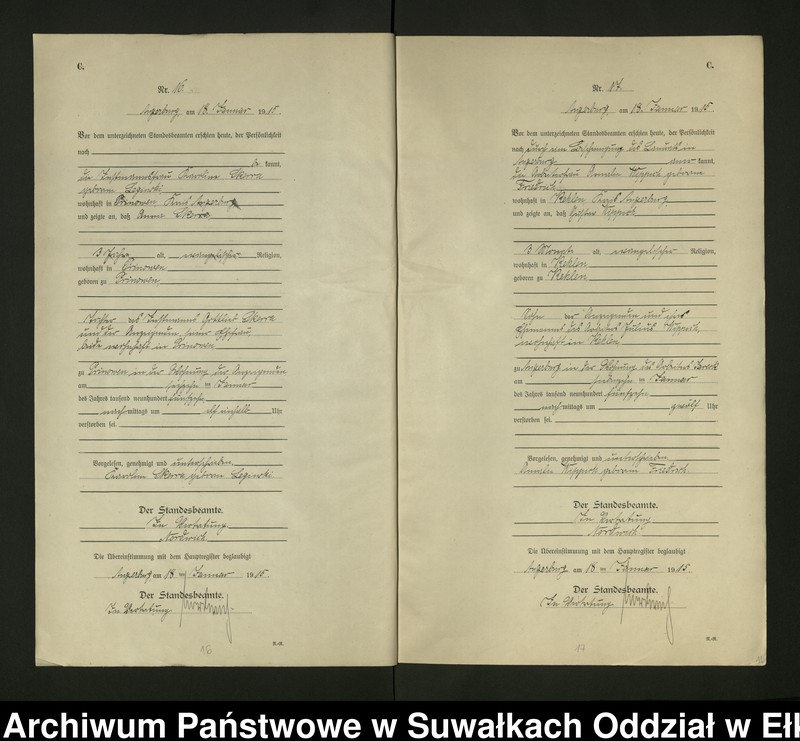 C.
Nr. 16.
Angerburg am 18. Januar 1915.
Vor dem unterzeichneten Standesbeamten erschien heute, der Persönlichkeit
nach
be kannt,
die Instmannsfrau Karoline Skorz
geborene Lezinski
wohnhaft in Prinowen Kreis Angerburg
und zeigte an, daß Anna Skorz
3 Jahre alt, evangelischer Religion,
wohnhaft in Prinowen
geboren zu Prinowen
Tochter des Instmanns Gottlieb Skorz
und der Anzeigenden seiner Ehefrau
beide wohnhaft in Prinowen
zu Prinowen in der Wohnung der Anzeigenden
am Januar
des Jahres tausend neunhundert fünfzehn
nach mittags um elf einhalb Uhr
verstorben sei.
Vorgelesen, genehmigt und unterschrieben
Karoline Skorz geborene Lezinski
Der Standesbeamte.
In Vertretung
Die Übereinstimmung mit dem Hauptregister beglaubigt
Angerburg am 18 ten Januar 1915.
Der Standesbeamte.
In Vertretung
R.-R.
16
C.
Nr. 17.
Angerburg am 18. Januar 1915
Vor dem unterzeichneten Standesbeamten erschien heute, der Persönlichkeit
nach durch eine Bescheinigung des Landrats in
Angerburg aner kannt,
die Arbeiterfrau Amalie Wippich geborene
Friedrich
wohnhaft in Kehlen, Kreis Angerburg
und zeigte an, daß Gustav Wippich
3 Monate alt, evangelischer Religion,
wohnhaft in Kehlen
geboren zu Kehlen
Sohn der Anzeigenden und ihres
Ehemannes des Arbeiters Julius Wippich,
wohnhaft in Kehlen
zu Angerburg in der Wohnung des Arbeiters
am Januar
des Jahres tausend neunhundert fünfzehn
nach mittags um zwölf Uhr
verstorben sei.
Vorgelesen, genehmigt und unterschrieben
Amalie Wippich geborene Friedrich
Der Standesbeamte.
In Vertretung
Die Übereinstimmung mit dem Hauptregister beglaubigt
Angerburg am 18 ten Januar 1915
Der Standesbeamte.
In Vertretung
R.-R.
17
Archiwum Państwowe w Suwałkach Oddział w Ełk